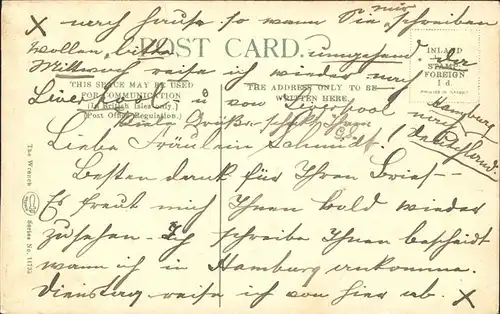 X nach hause. so wann Sie nur schreiben
wollen, bitte umgehend. Der
POST CARD.
Mittwoch reise ich wieder nach
THIS SPACE MAY BE USED
FOR COMMUNICATION
(In British Isles only.)
(Post Office Regulation.)
THE ADDRESS ONLY TO BE
WRITTEN HERE.
INLAND
STAMP
FOREIGN
1d
Liverpool u von Liverpool nach Hamburg
(Deutschland.
Viele Grüße
Liebe Fräulein Schmidt!
Besten dank für Ihren Brief—
Es freut mich Ihnen bald wieder
zusehen— Ich schreibe Ihnen bescheidt
wann ich in Hamburg ankomme.
Dienstag reise ich von hier ab. X
The Wrench
Series No.